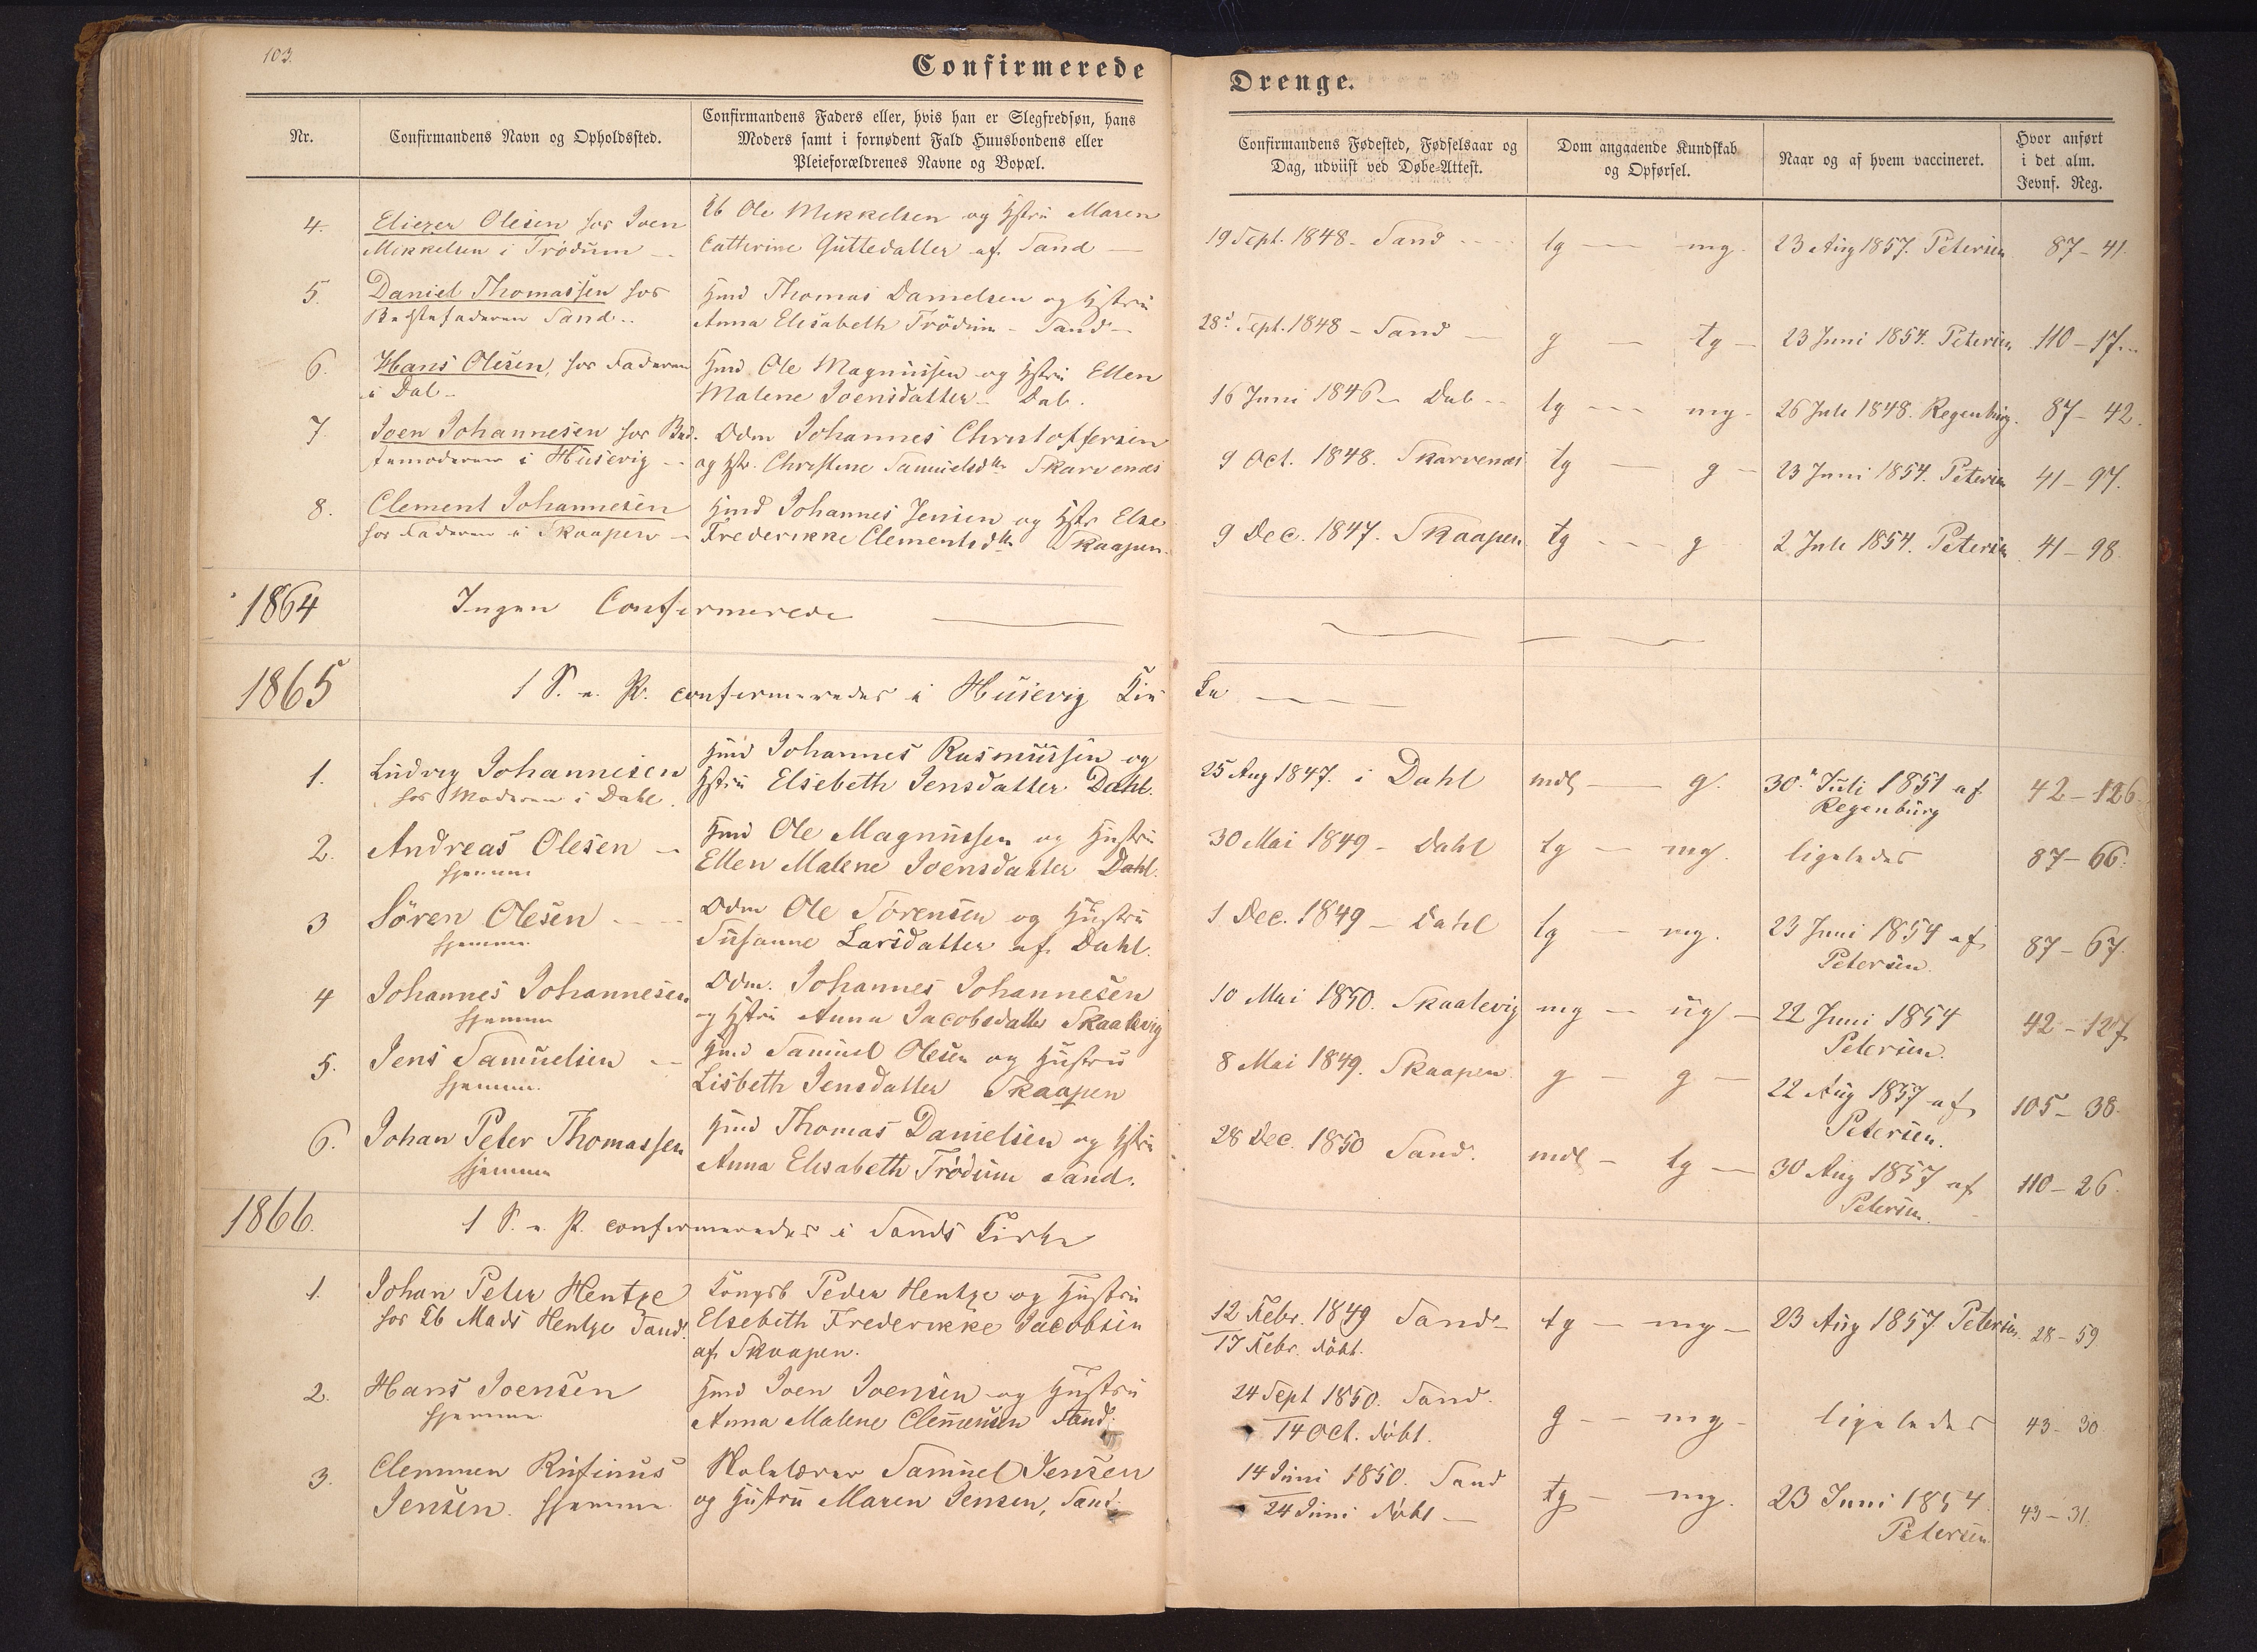 103.
Confirmerede
Drenge.
Nr.
Confirmandens Navn og Opholdssted.
Confirmandens Faders eller, hvis han er Slegfredsøn, hans
Moders samt i fornødent Fald Huusbondens eller
Pleieforældrenes Navne og Bopæl.
Confirmandens Fødested, Fødselsaar og
Dag, udviist ved Døbe-Attest.
Dom angaaende Kundskab
og Opførsel.
Naar og af hvem vaccineret.
Hvor anført
i det alm.
Jevnf. Reg.
4. Eliezer Olesen hos Joen
Mikkelsen i Trödum
Ole Mikkelsen og Hstru Maren
Catherine Guttedatter af Sand
19 Sept. 1848 - Sand
tg mg.
23 Aug 1857. Petersen
87 - 41.
5. Daniel Thomassen hos
Bedstefaderen Sand
Hmd Thomas Danielsen og Hstru
Anna Elisabeth Trödum - Sand
28d Sept. 1848 - Sand
g tg
23 Juni 1854. Petersen
110 - 17
6. Hans Olesen, hos Faderen
i Dal
Hmd Ole Magnussen og Hstru Ellen
Malene Joensdatter - Dal.
16 Juni 1846 - Dal
tg mg
26 Juli 1848. Regenburg.
87 - 42.
7. Joen Johannesen hos Bed-
stemoderen i Husevig
Odm Johannes Christoffersen
og Hstr. Christine Samuelsdtr Skarvenæs
9 Oct. 1848. Skarvenæs
tg g
23 Juni 1854. Petersen
41 - 97.
8. Clement Johannesen
hos Faderen i Skaapen
Hmd Johannes Jensen og Hstr Else
Frederikke Clementsdtr Skaapen.
9 Dec. 1847. Skaapen
tg g
2 Juli 1854. Petersen
41 - 98
1864
Ingen Confirmerede
1865
1 S. e. P. confirmeredes i Husevig Kir
ke
1. Ludvig Johannesen
hos Moderen i Dahl.
Hmd Johannes Rasmussen og
Hstru Elsebeth Jensdatter Dahl.
25 Aug 1847. i Dahl
mdl g.
30 Juli 1851 af
Regenburg
42 - 126
2. Andreas Olesen
hjemme
Hmd Ole Magnussen og Hustru
Ellen Malene Joensdatter Dahl.
30 Mai 1849 - Dahl
tg mg.
ligeledes
87 - 66.
3 Sören Olesen
hjemme.
Odm Ole Sörensen og Hustru
Susanne Larsdatter af Dahl.
1 Dec. 1849 - Dahl
tg mg.
23 Juni 1854 af
Petersen.
87 - 67.
4 Johannes Johannesen
hjemme
Odm. Johannes Johannesen
og Hstru Anna Jacobsdatter Skaalevig
10 Mai 1850. Skaalevig
mg ug
22 Juni 1854
Petersen.
42 - 127
5. Jens Samuelsen
hjemme.
Hmd Samuel Olesen og Hustru
Lisbeth Jensdatter Skaapen
8 Mai 1849. Skaapen
g - g
22 Aug 1857 af
Petersen.
105 - 38.
6. Johan Peter Thomassen
hjemme
Hmd Thomas Danielsen og Hstru
Anna Elisabeth Trödum Sand.
28 Dec. 1850 Sand.
mdl - tg
30 Aug 1857 af
Petersen.
110 - 26.
1866.
1 S. e. P. confirmeredes i Sands Kirke
1. Johan Peter Hentze
hos Mads Hentze Sand.
Kongsb Peder Hentze og Hustru
Elsebeth Frederikke Jacobsen
af Skaapen.
12 Febr. 1849 Sand
17 Febr. döbt.
tg - mg
23 Aug 1857 Petersen.
28 - 59
2. Hans Joensen
hjemme
Hmd Joen Joensen og Hustru
Anna Malene Clemensen Sand.
24 Sept 1850. Sand.
14 Oct. döbt.
g - mg
ligeledes
43 - 30
3. Clemmen Rufinus
Jensen. hjemme.
Skolelærer Samuel Jensen
og Hustru Maren Jensen, Sand.
14 Juni 1850. Sand
24 Juni döbt
tg mg.
23 Juni 1854.
Petersen.
43 - 31.